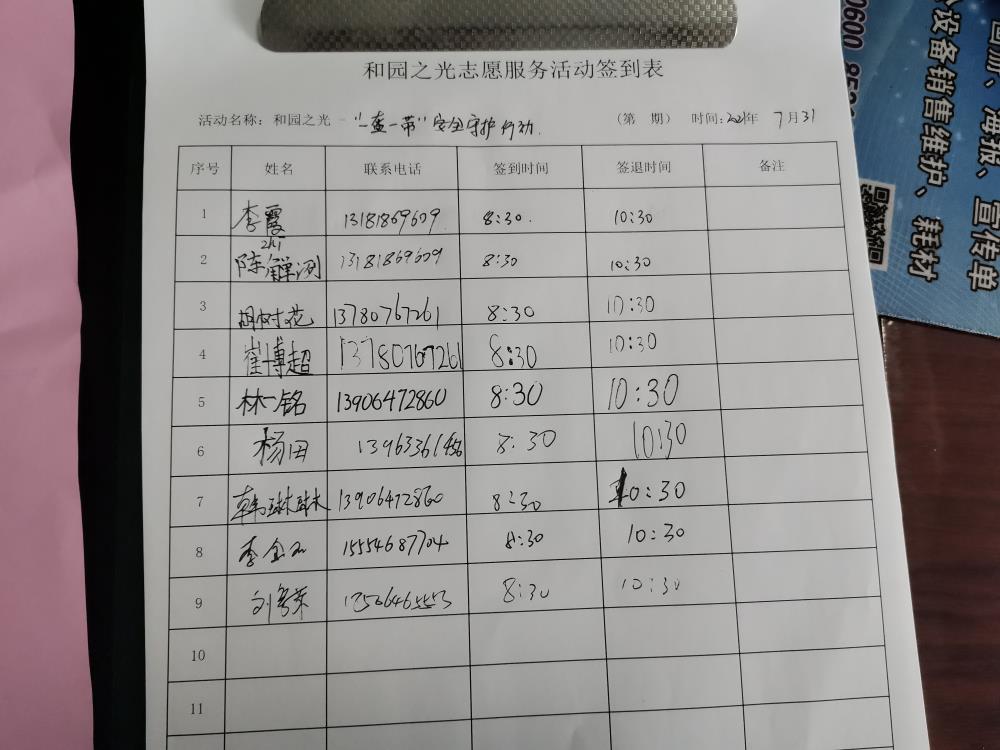 和园之光志愿服务活动签到表
活动名称：和园之光-"一盔一带"安全守护行动. （第 期） 时间：2021年 7月31
序号 姓名 联系电话 签到时间 签退时间 备注
1 李霞 13181869609 8:30. 10:30
2 陈 13181869609 8:30 10:30
3 胡树花 13780767261 8:30 10:30
4 崔博超 13780767261 8:30 10:30
5 林一铭 13906472860 8:30 10:30
6 杨田 8:30 10:30
7 韩琳琳 13906472860 8:30 10:30
8 李金 15554687704 8:30 10:30
9 刘 8:30 10:30
10
11
海报、宣传单
设备销售维护、耗材